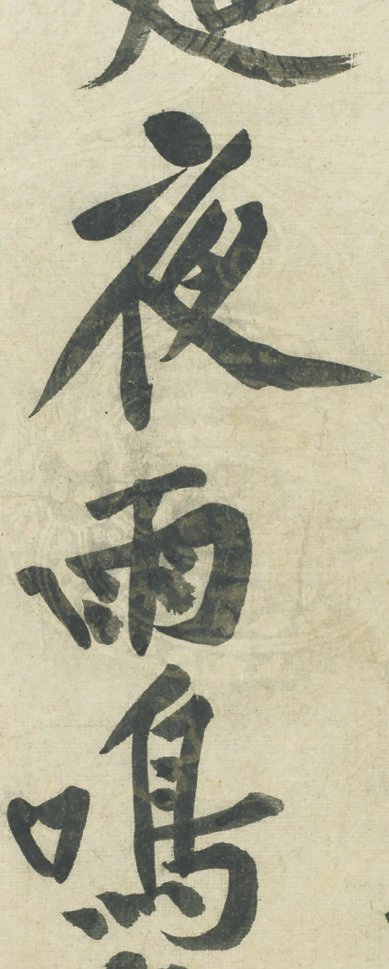 夜雨鳴